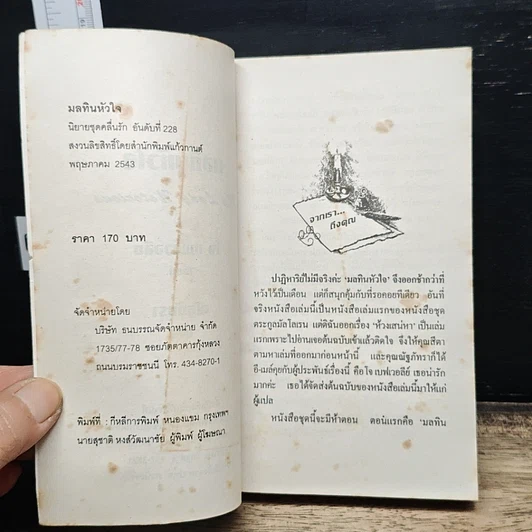 มลทินหัวใจ
นิยายชุดคลื่นรัก อันดับที่ 228
สงวนลิขสิทธิ์โดยสำนักพิมพ์แก้วกานต์
พฤษภาคม 2543
ราคา 170 บาท
จัดจำหน่ายโดย
บริษัท ธนบรรณจัดจำหน่าย จำกัด
1735/77-78 ซอยภัตตาคารกุ้งหลวง
ถนนบรมราชชนนี โทร. 434-8270-1
พิมพ์ที่ : กีหลีการพิมพ์ หนองแขม กรุงเทพฯ
นายสุชาติ หงส์วัฒนาชัย ผู้พิมพ์ ผู้โฆษณา
จากเรา...
ถึงคุณ
ปาฏิหาริย์ไม่มีจริงค่ะ 'มลทินหัวใจ' จึงออกช้ากว่าที่
หวังไว้เป็นเดือน แต่ก็สนุกคุ้มกับที่รอคอยทีเดียว อันที่
จริงหนังสือเล่มนี้เป็นหนังสือเล่มแรกของหนังสือชุด
ตระกูลมัลโลเรน แต่ดิฉันออกเรื่อง 'ห้วงเสน่หา' เป็นเล่ม
แรกเพราะไปอ่านเจอต้นฉบับเข้าแล้วติดใจ จึงให้คุณสีตา
ตามหาเล่มที่ออกมาก่อนหน้านี้ และคุณณัฐภัทราก็ได้
อี-เมล์คุยกับผู้ประพันธ์เรื่องนี้ คือ โจ เบฟเวอลีย์ เธอน่ารัก
มากค่ะ เธอได้จัดส่งต้นฉบับของหนังสือเล่มนี้มาให้แก่
ผู้แปล
หนังสือชุดนี้จะมีห้าตอน ตอนแรกคือ 'มลทิน